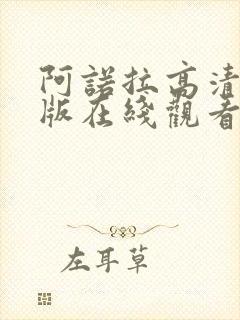 阿諾拉高清
版在綫觀看
左耳草